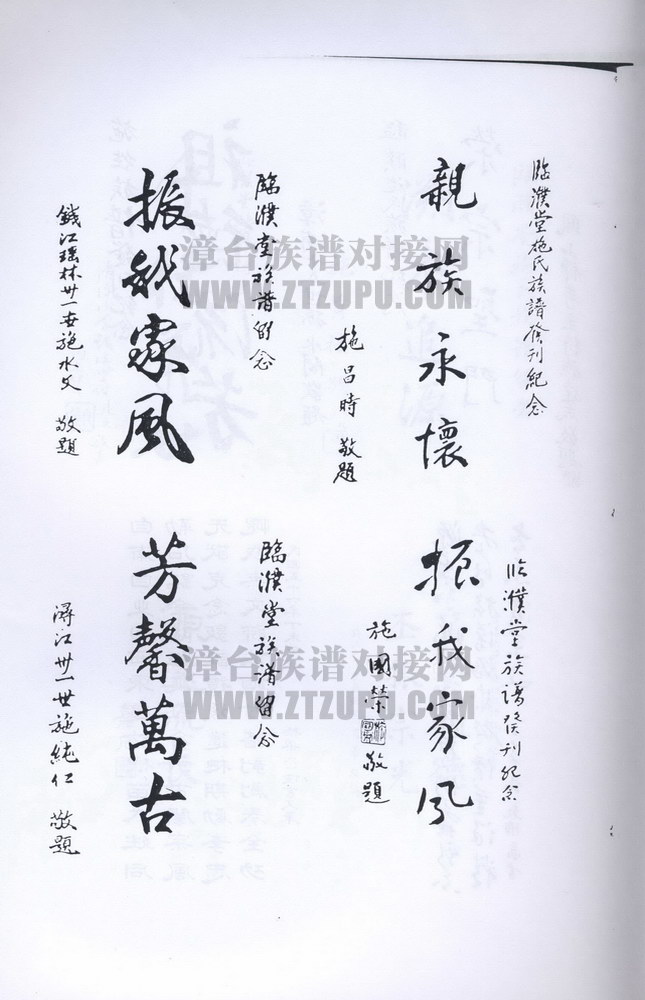 臨濮堂施氏族譜發刊紀念
親族永懷
施昌時 敬題
臨濮堂族譜留念
振我家風
錢江瑤林卅一世施水文 敬題
临濮堂族譜發刊紀念
振我家风
施國榮 敬題
臨濮堂族譜留念
芳馨萬古
潯江卅一世施純仁 敬題
漳台族谱对接网
WWW.ZTZUPU.COM
漳台族谱对接网
WWW.ZTZUPU.COM